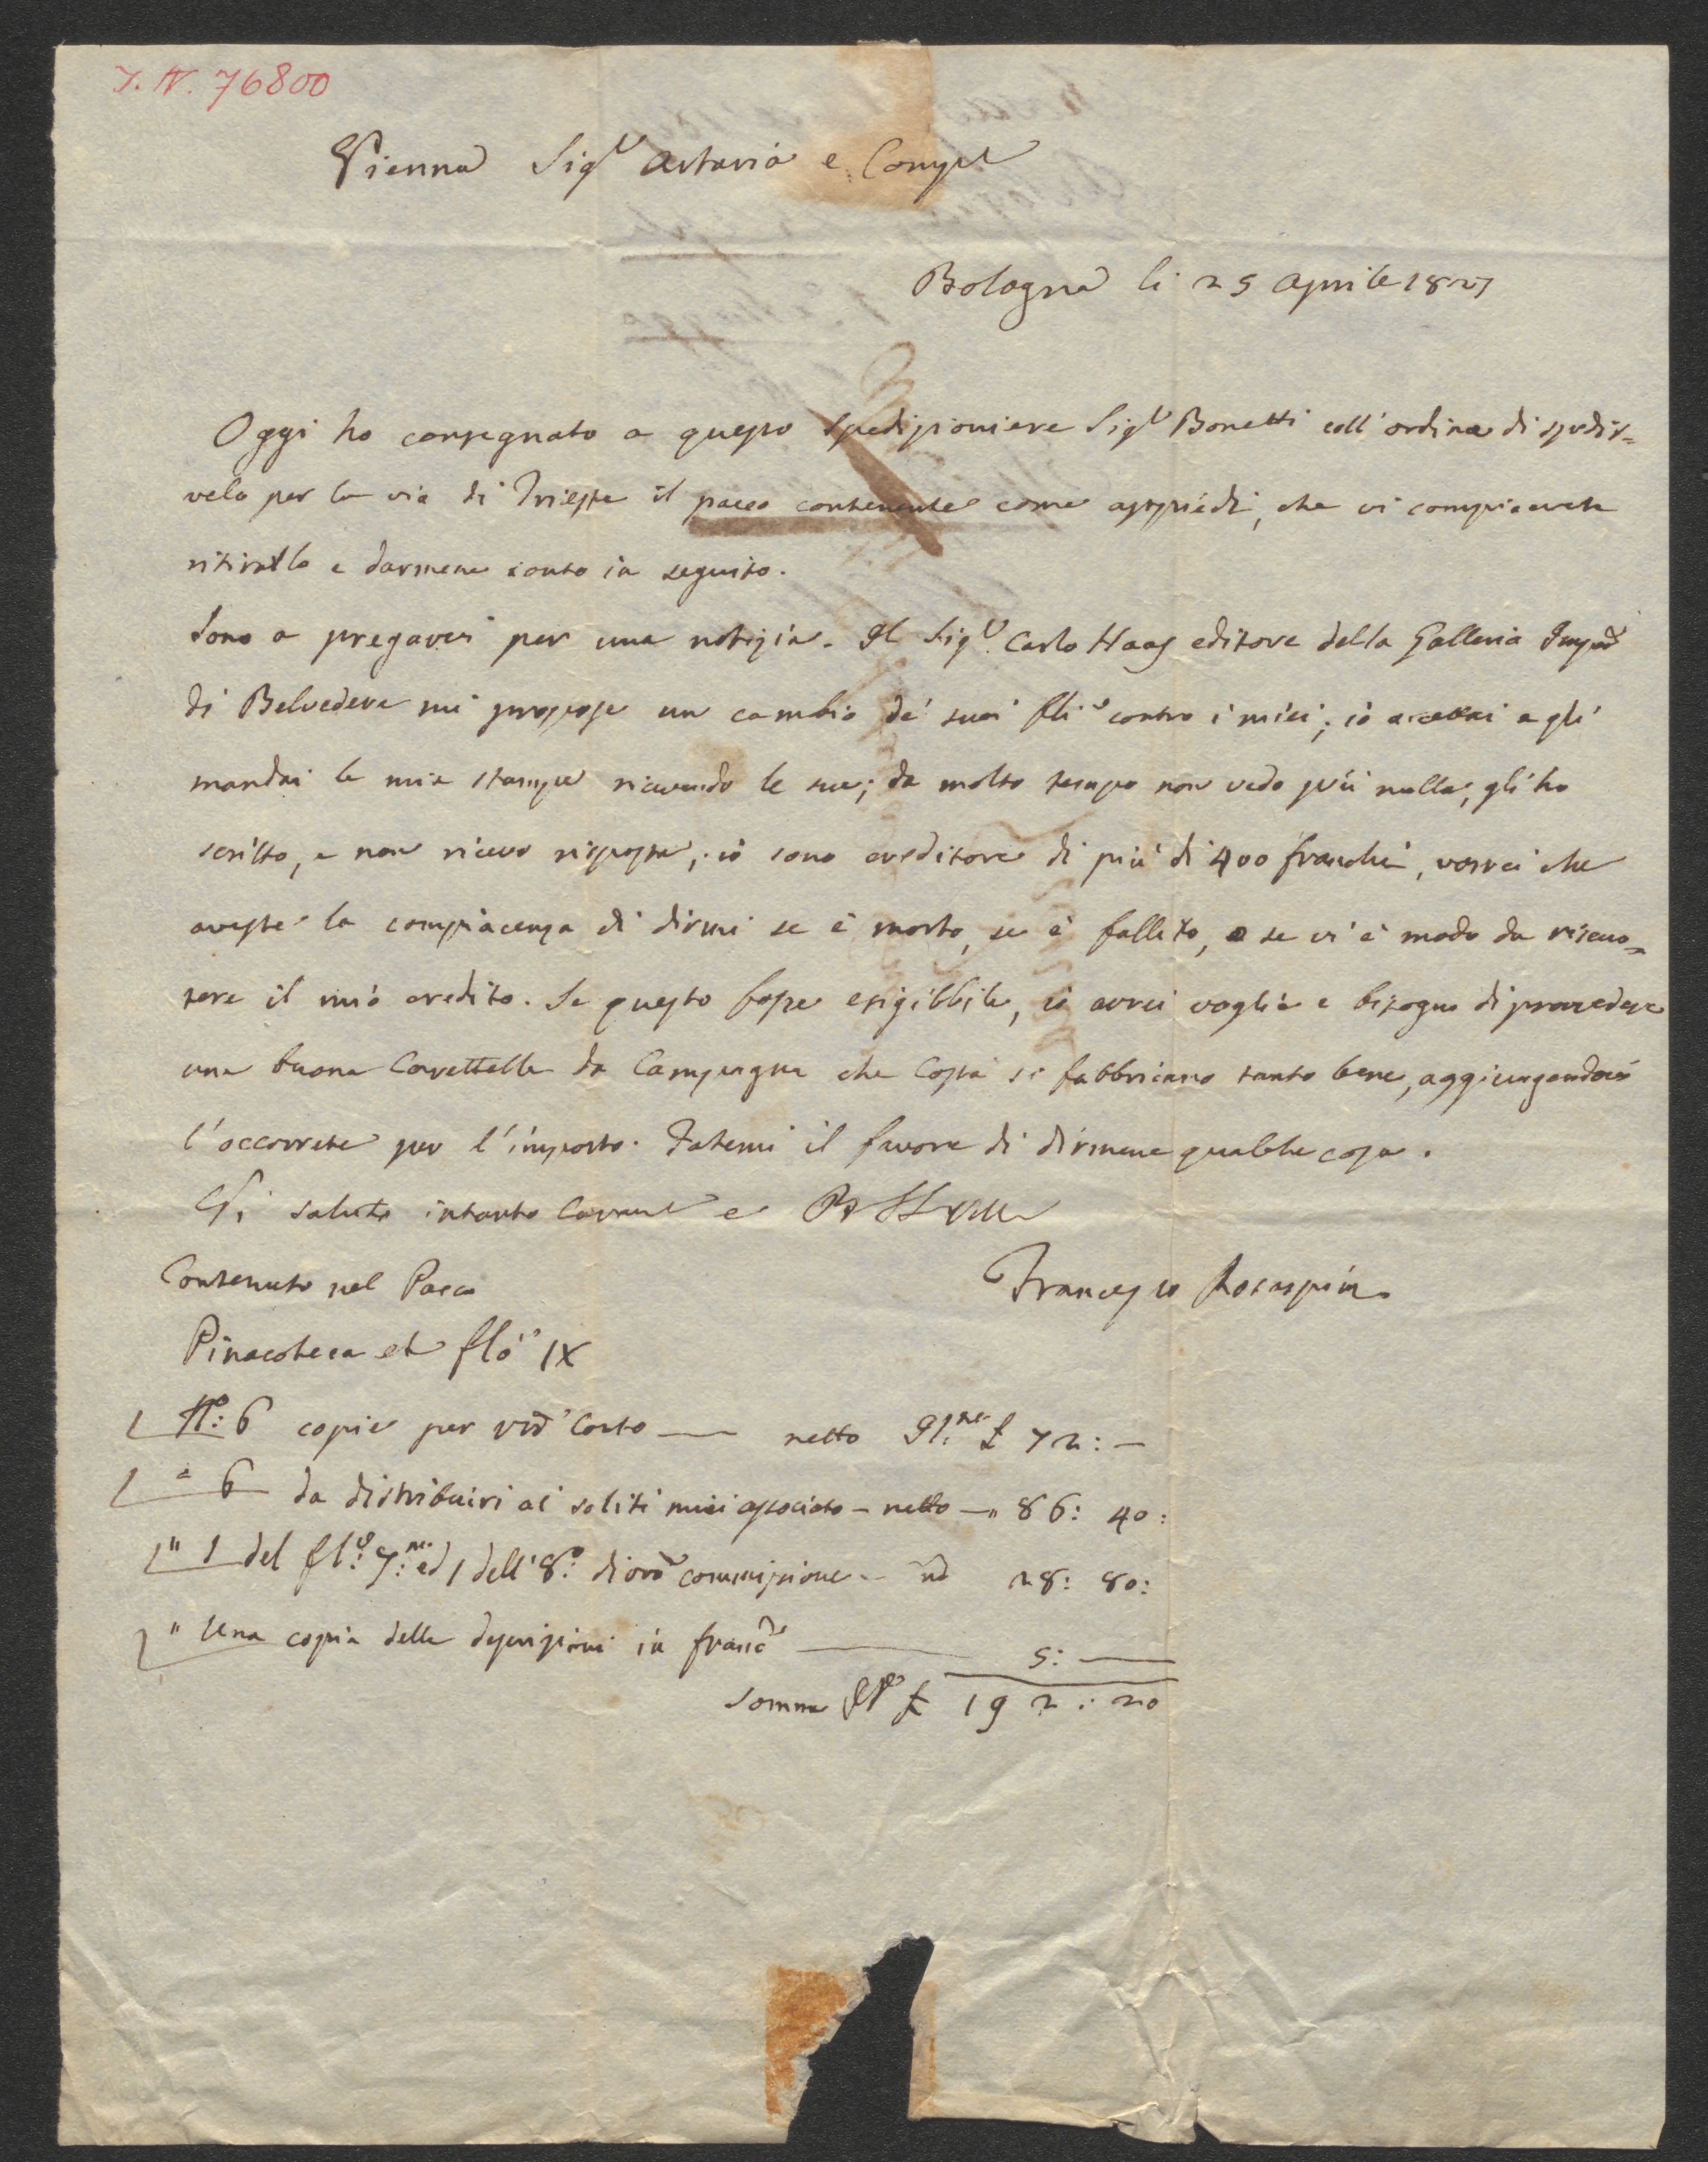 I. N. 76800
Vienna Sigri Artaria e Compi
Bologna li 25 Aprile 1827
Oggi ho consegnato a questo spedizioniere Sigr Bonetti coll'ordine di spedir=
velo per la via di Trieste il pacco contenente come appiedi, che vi compiacerete
ritirarlo e darmene conto in seguito.
Sono a pregarvi per una notizia. Il Sigr. Carlo Haas editore della Galleria Imple
di Belvedere mi propose un cambio de' suoi fli contro i miei; io accettai e gli
mandai le mie stampe ricevendo le sue; da molto tempo non vedo più nulla, gli ho
scritto, e non ricevo risposta; io sono creditore di più di 400 franchi, vorrei che
aveste la compiacenza di dirmi se è morto, se è fallito, o se vi è modo da riscuo=
tere il mio credito. Se questo fosse esigibbile, io avrei voglia e bisogno di provedere
una buona Carettella da Campagna che Costà si fabbricano tanto bene, aggiungendoci
l'occorrete per l'importo. Fatemi il favore di dirmene qualche cosa.
Vi saluto intanto
Contenuto nel Pacco
Francesco Rosaspina
Pinacoteca flo IX
No: 6 copie per vro Conto — netto £ 72: —
" 6 da distribuirsi ai soliti miei associati — netto — " 86: 40:
" 1 del flo: 7: ed 1 dell' 8o: di vra commissione — 28: 80:
" Una copia delle descrizioni in france — 5: —
Somma £ 192: 20